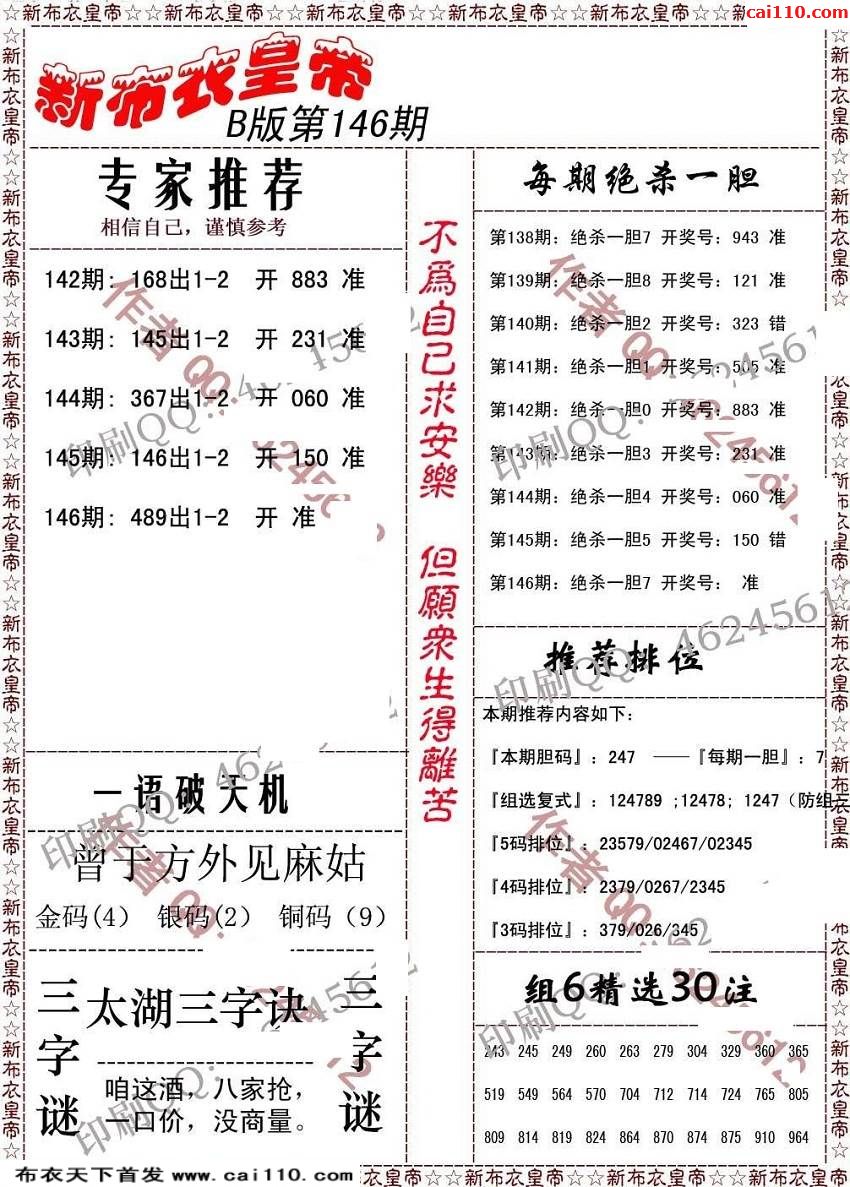 ☆新布衣皇帝☆☆新布衣皇帝☆☆新布衣皇帝☆☆新布衣皇帝☆☆新布衣皇帝☆☆新布衣皇帝☆☆新
cai110.com
新布衣皇帝
B版第146期
专家推荐
相信自己，谨慎参考
142期: 168出1-2 开 883 准
143期: 145出1-2 开 231 准
144期: 367出1-2 开 060 准
145期: 146出1-2 开 150 准
146期: 489出1-2 开 准
一语破天机
曾于方外见麻姑
金码(4) 银码(2) 铜码（9）
三字谜
太湖三字诀
咱这酒，八家抢，
一口价，没商量。
三字谜
不為自己求安樂 但願衆生得離苦
每期绝杀一胆
第138期: 绝杀一胆7 开奖号: 943 准
第139期: 绝杀一胆8 开奖号: 121 准
第140期: 绝杀一胆2 开奖号: 323 错
第141期: 绝杀一胆1 开奖号: 505 准
第142期: 绝杀一胆0 开奖号: 883 准
第143期: 绝杀一胆3 开奖号: 231 准
第144期: 绝杀一胆4 开奖号: 060 准
第145期: 绝杀一胆5 开奖号: 150 错
第146期: 绝杀一胆7 开奖号: 准
推荐排位
本期推荐内容如下:
『本期胆码』: 247 ——『每期一胆』: 7
『组选复式』: 124789 ;12478; 1247（防组三
『5码排位』: 23579/02467/02345
『4码排位』: 2379/0267/2345
『3码排位』: 379/026/345
组6精选30注
243 245 249 260 263 279 304 329 360 365
519 549 564 570 704 712 714 724 765 805
809 814 819 824 864 870 874 875 910 964
布衣天下首发 www.cai110.com
衣皇帝☆☆新布衣皇帝☆☆新布衣皇帝☆☆新布衣皇帝☆
作者QQ:
印刷QQ: 46245612